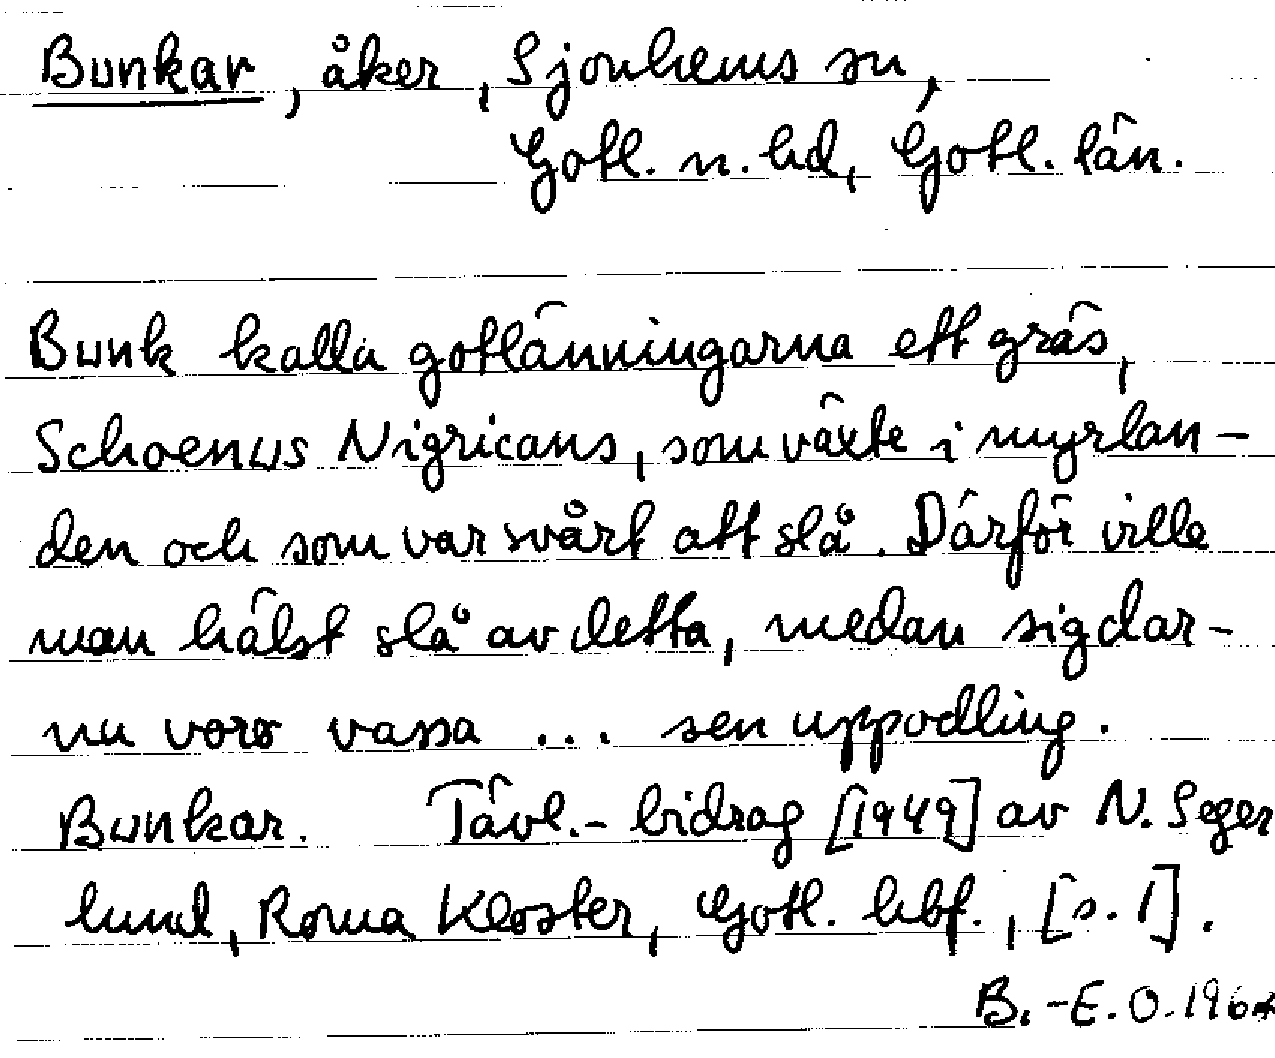 Bunkar, åker, Sjonhems sn,
Gotl. n. hd, Gotl. län.
Bunk kalla gotlänningarna ett gräs,
Schoenus Nigricans, som växte i myrlan-
den och som var svårt att slå. Därför ville
man hälst slå av detta, medan sigdar-
na voro vassa ... sen uppodling.
Bunkar. Tävl.-bidrag [1949] av N. Seger
lund, Roma Kloster, Gotl. hbf., [s. 1].
B.-E. O. 1964